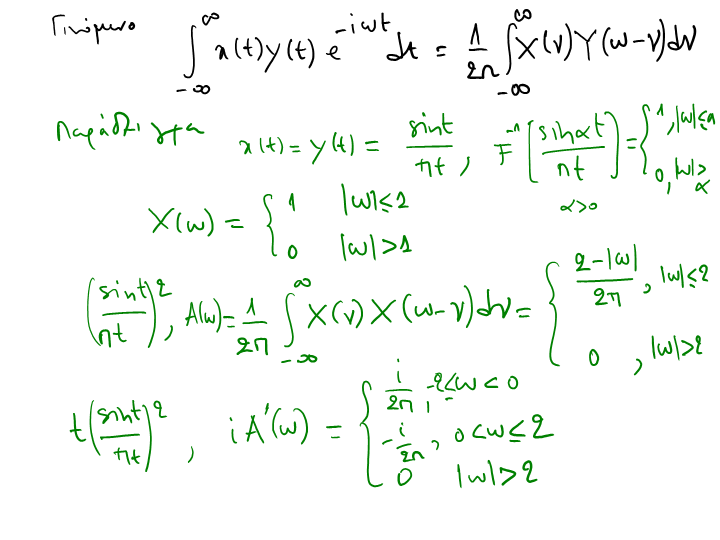 Γινόμενο ∫_{-∞}^{∞} x(t)y(t) e^{-iωt} dt = 1/2π ∫_{-∞}^{∞} X(ν)Y(ω-ν)dν
x(t) = y(t) = sint/πt, F^{-1}[sinαt/πt] = {1, |ω|≤α
0, |ω|>α
α>0
X(ω) = {1 |ω|≤1
0 |ω|>1
(sint/πt)^2, A(ω) = 1/2π ∫_{-∞}^{∞} X(ν)X(ω-ν)dν = {2-|ω|/2π, |ω|≤2
0, |ω|>2
t(sint/πt)^2, iA'(ω) = {i/2π, -2≤ω<0
-i/2π, 0<ω≤2
0 |ω|>2